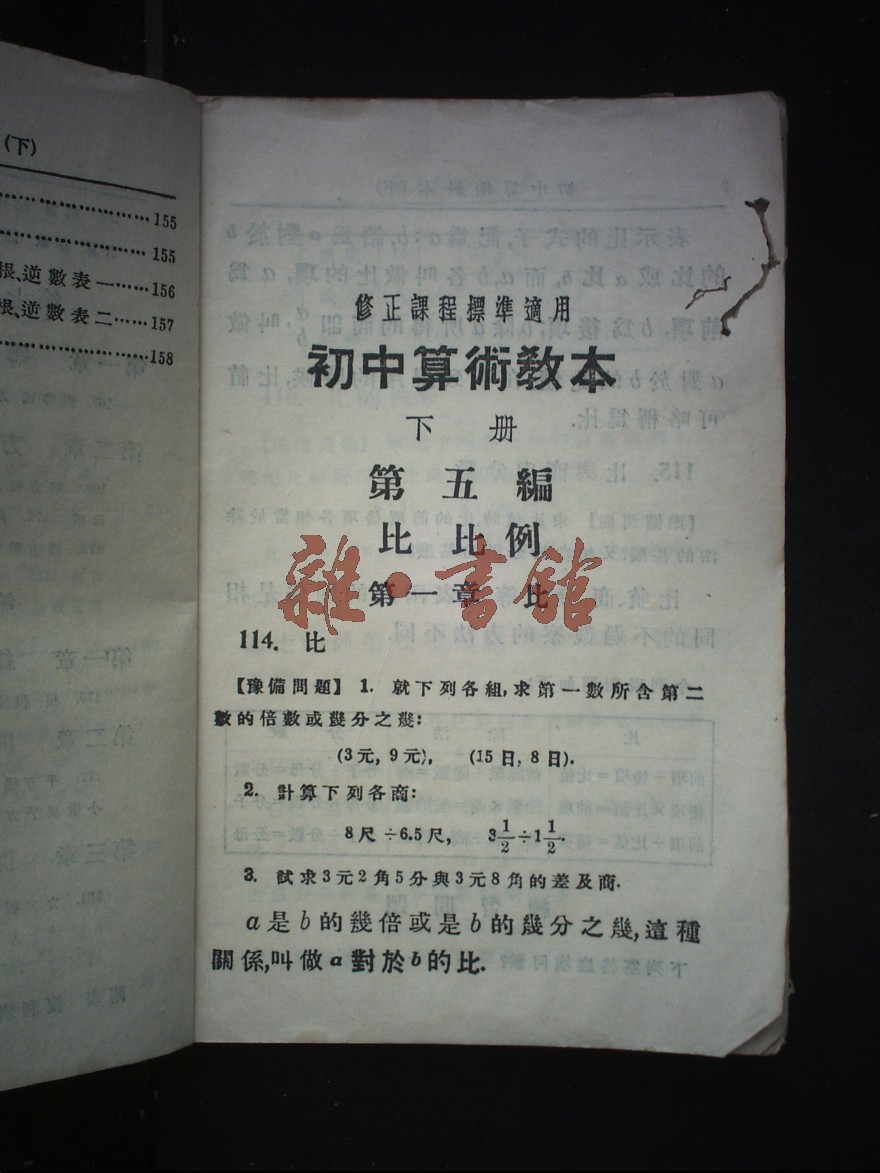 (下)
155
155
根、逆數表一……156
根、逆數表二……157
158
修正課程標準適用
初中算術敎本
下册
第五編
比 比例
第一章 比
雜·書館
114. 比
【豫備問題】 1. 就下列各組,求第一數所含第二
數的倍數或幾分之幾:
(3元, 9元), (15日, 8日).
2. 計算下列各商:
8尺÷6.5尺, 3 1/2 ÷ 1 1/2.
3. 試求3元2角5分與3元8角的差及商.
a是b的幾倍或是b的幾分之幾,這種
關係,叫做a對於b的比.